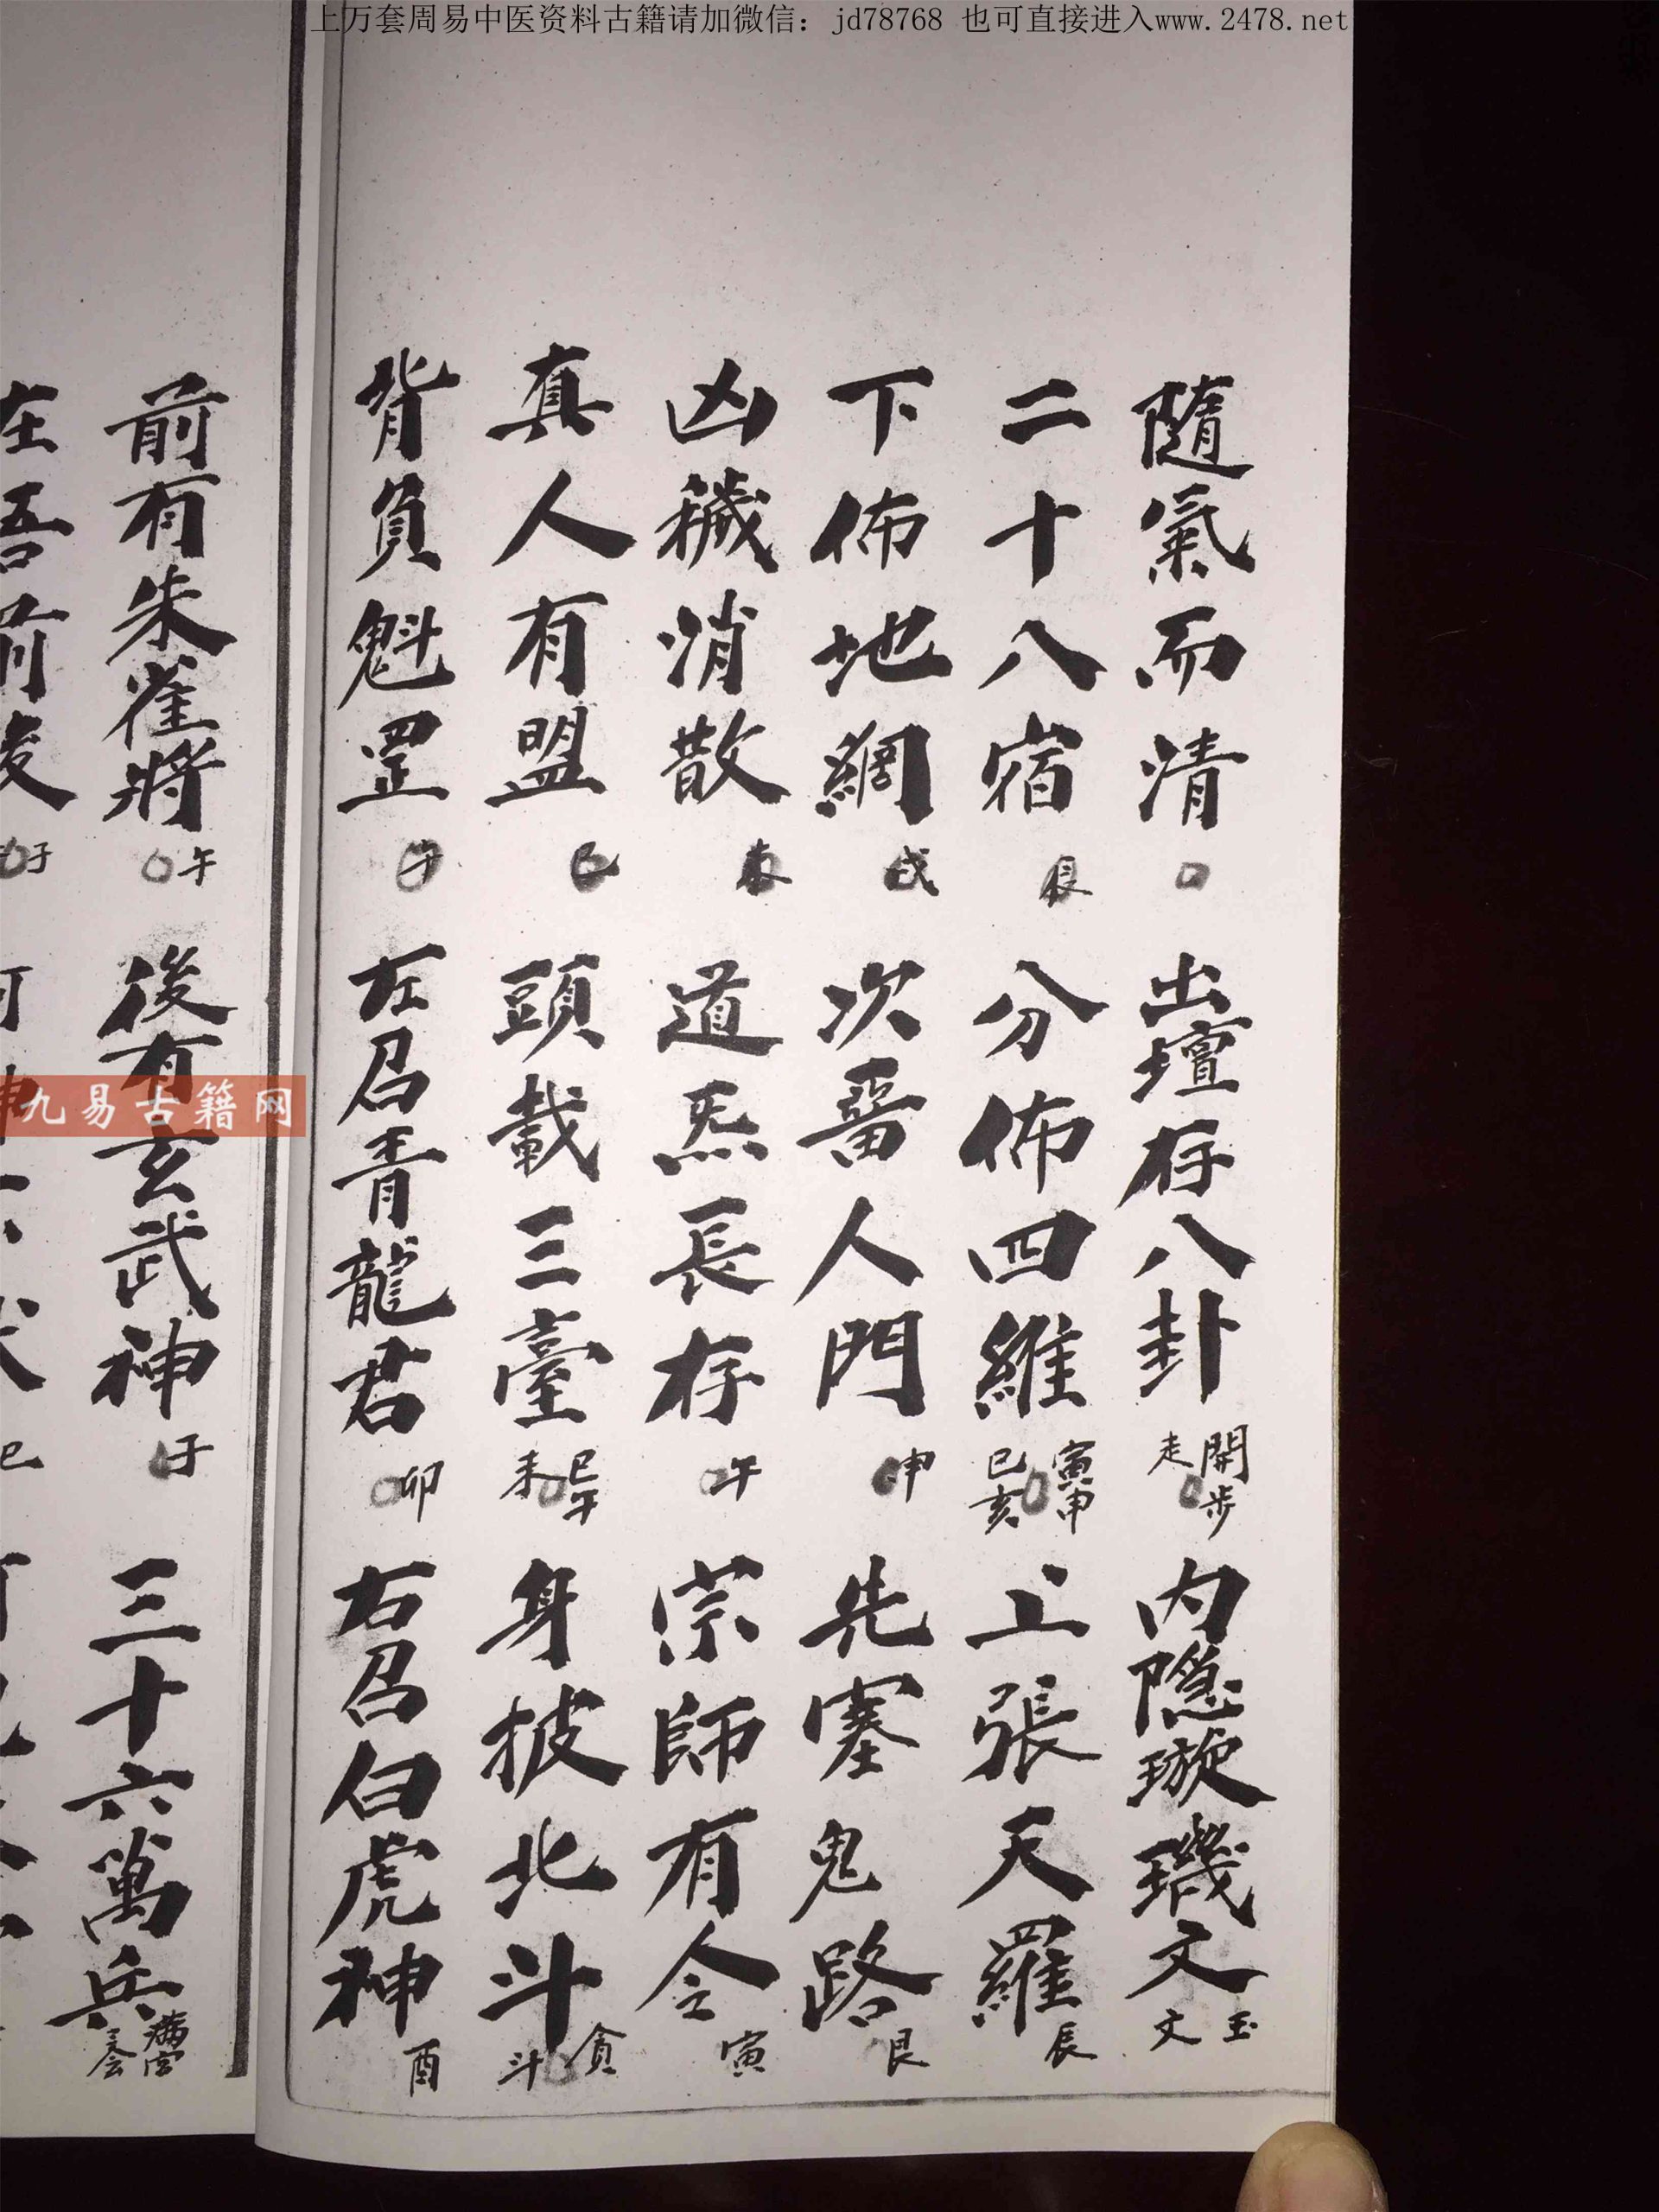 上万套周易中医资料古籍请加微信：jd78768 也可直接进入www.2478.net
隨氣而清 出壇存八卦 開步走 内隠璇璣文 玉文
二十八宿 辰 分佈四維 寅申巳亥 上張天羅 辰
下佈地網 戌 次啚人門 申 先塞鬼路 艮
凶穢消散 未 道炁長存 午 宗師有令 寅
真人有盟 巳 頭載三臺 巳午未 身披北斗 貪斗
背負魁罡 午 左召青龍君 卯 右召白虎神 酉
前有朱雀將 午 後有玄武神 子 三十六萬兵
在吾前後 子
九易古籍网